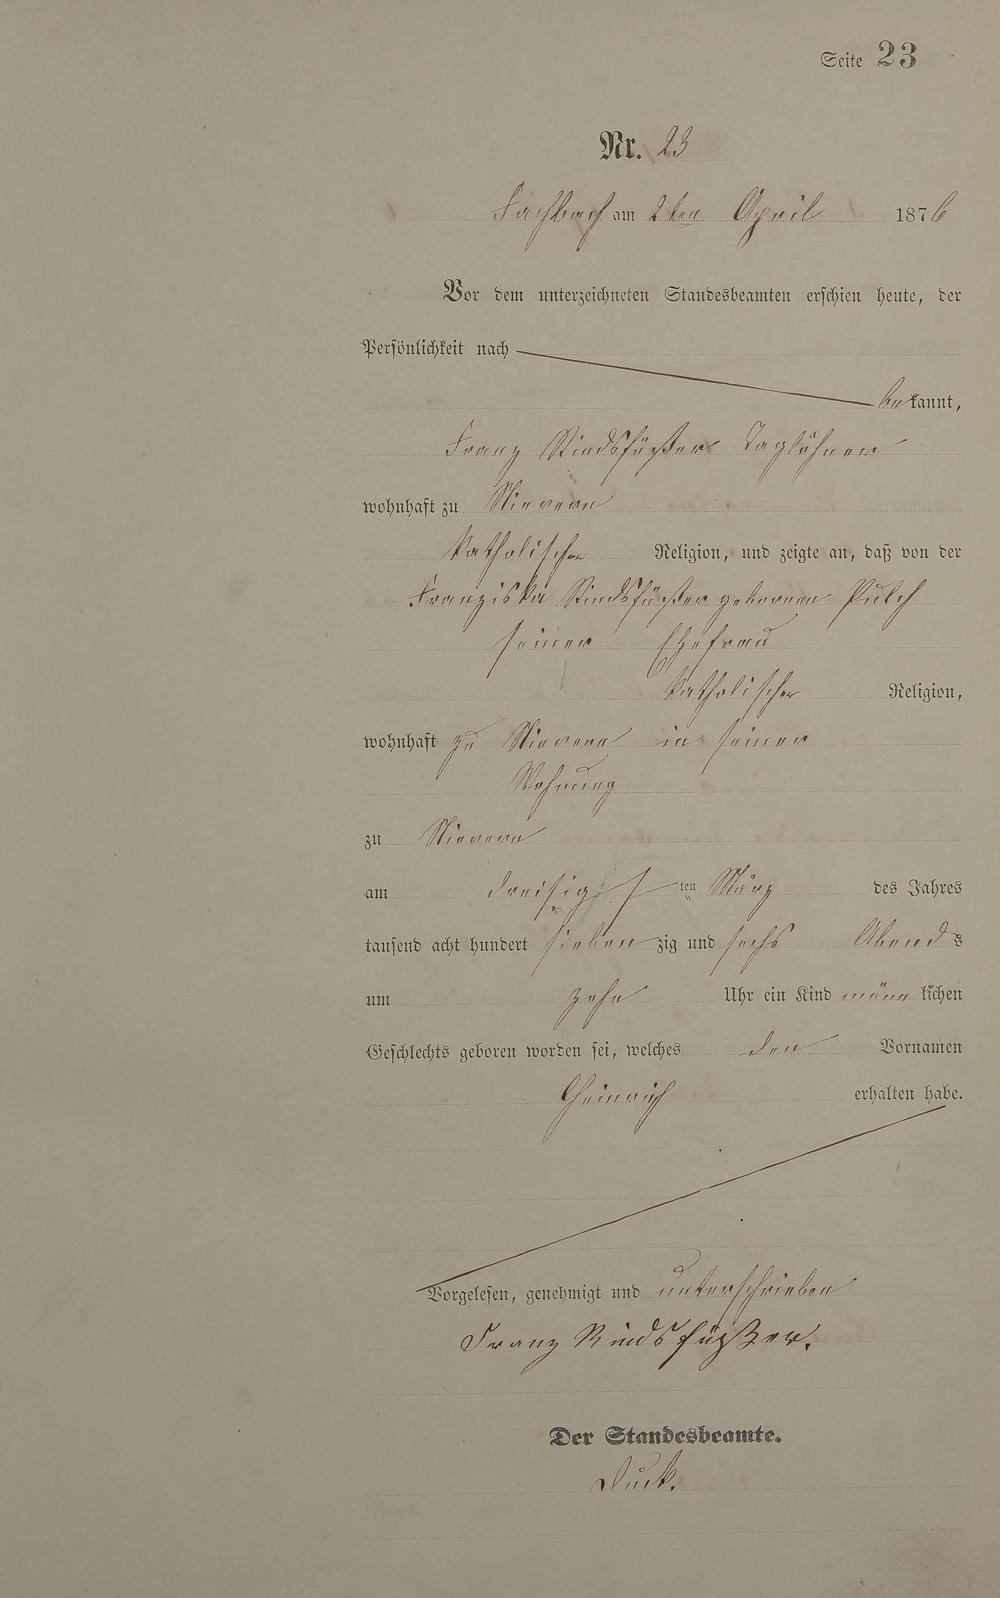 Seite 23
Nr. 23
Fachbach am 2ten April 1876
Vor dem unterzeichneten Standesbeamten erschien heute, der
Persönlichkeit nach
bekannt,
Franz Rindsfüßer Taglöhner
wohnhaft zu Nievern
katholischer Religion, und zeigte an, daß von der
Franziska Rindsfüßer geborenen Pulch
seiner Ehefrau
katholischer Religion,
wohnhaft zu Nievern in seiner
Wohnung
zu Nievern
am dreisigsten März des Jahres
tausend acht hundert siebenzig und sechs Abends
um zehn Uhr ein Kind männlichen
Geschlechts geboren worden sei, welches den Vornamen
Heinrich erhalten habe.
Vorgelesen, genehmigt und unterschrieben
Franz Rindsfüßer.
Der Standesbeamte.